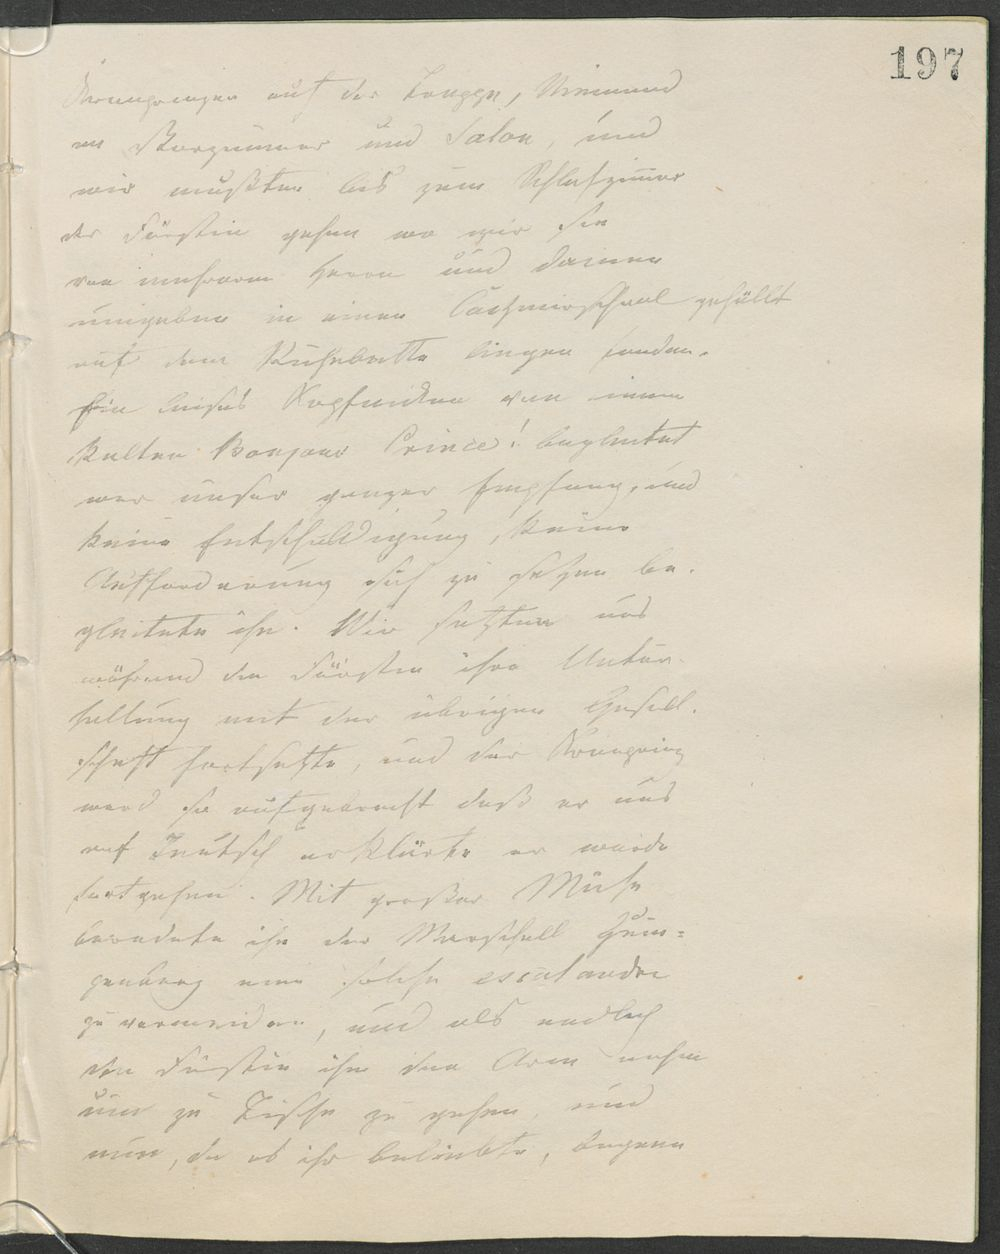 197
Kronprinzen auf der Treppe, Niemand
im Vorzimmer und Salon, und
wir mußten bis zum Schlafzimmer
der Fürstin gehen wo wir sie
von mehreren Herrn und Damen
umgeben in einen Cachmirschaal gehüllt
auf dem Ruhebette liegen fanden.
Ein leises Kopfnicken von einem
kalten Bonjour Prince! begleitet
war unser ganzer Empfang, und
keine Entschuldigung, keine
Aufforderung sich zu setzen be-
gleitete ihn. Wir setzten uns
während die Fürstin ihre Unter-
haltung mit der übrigen Gesell-
schaft fortsetzte, und der Kronprinz
ward so aufgebracht daß er uns
auf Deutsch erklärte er würde
fortgehen. Mit großer Mühe
beredete ihn der Marschall
eine solche
zu vermeiden, und als endlich
die Fürstin ihm den Arm nahm
um zu Tische zu gehen, und
nun, da es ihr beliebte, begann